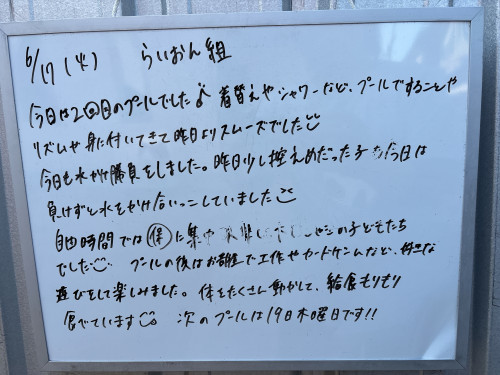 6/17(火) らいおん組
今日は2回目のプールでした♪ 着替えやシャワーなど、プールですることや
リズムや身に付いてきて昨日よりスムーズでした
今日も水かけ勝負をしました。昨日少し控えめだった子も今日は
負けずと水をかけ合いっこしていました
自由時間では㋭に集中
の子どもたち
でした プールの後はお部屋で工作やカードゲームなど、好きな
遊びをして楽しみました。体をたくさん動かして、給食もりもり
食べています 次のプールは19日木曜日です!!